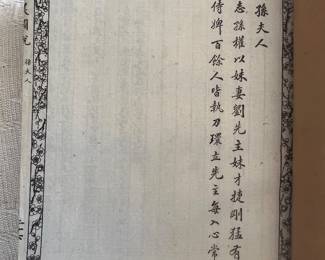 孫夫人
志孫權以妹妻劉先主妹才捷剛猛有
侍婢百餘人皆執刀環立先主每入心常
孫夫人